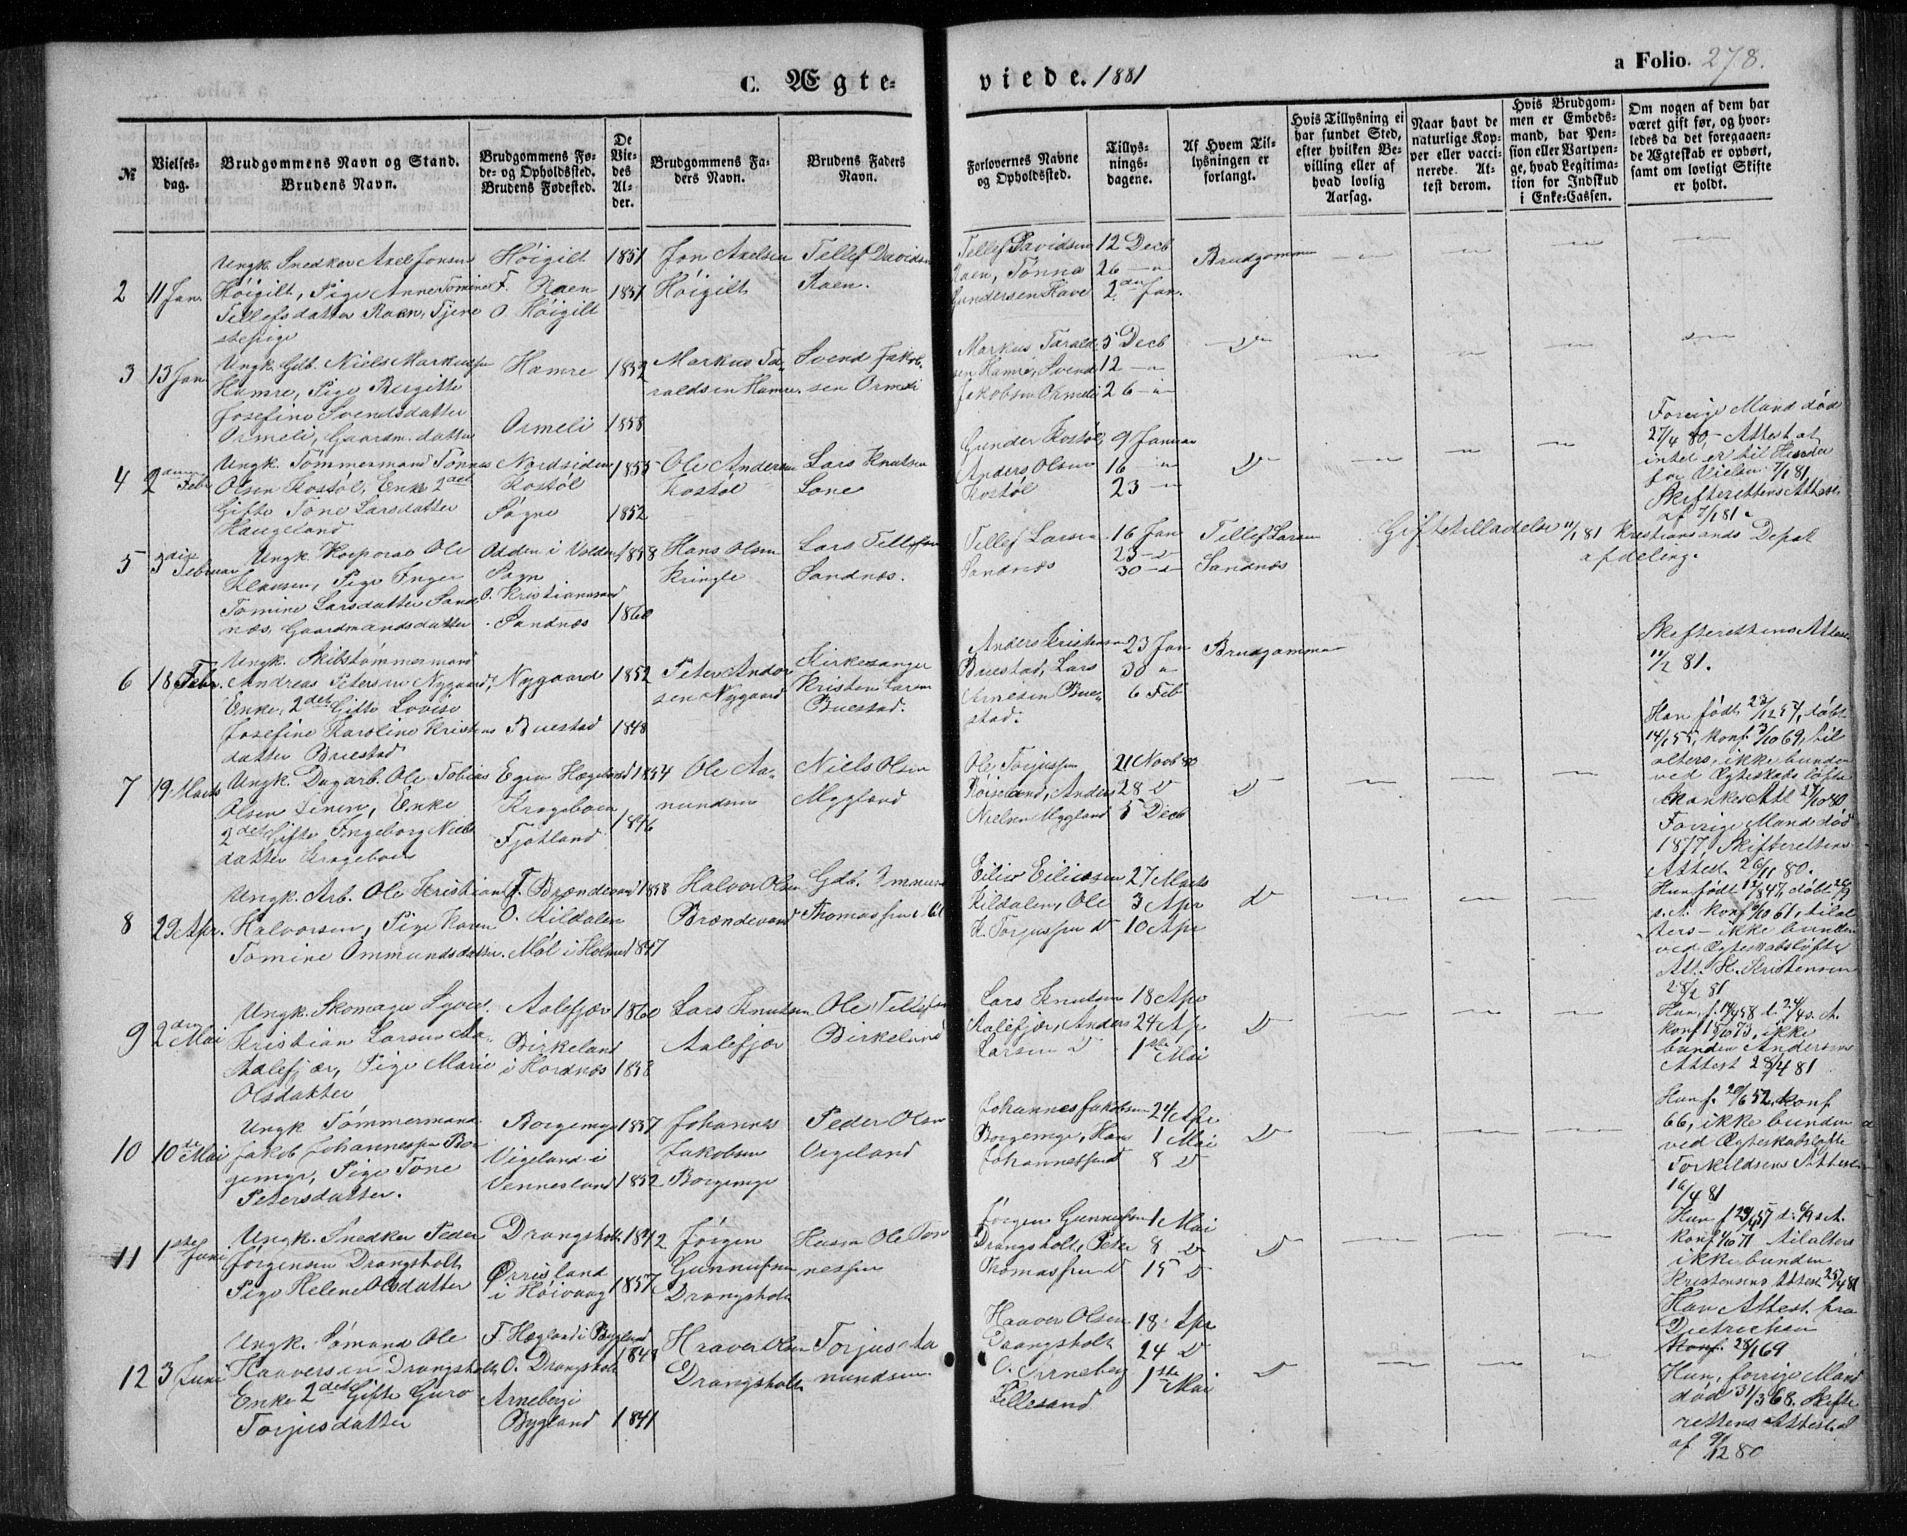 C. Ægte-
viede. 1881
a Folio. 278.
№
Vielses-
dag.
Brudgommens Navn og Stand.
Brudens Navn.
Brudgommens Fø-
de- og Opholdssted.
Brudens Fødested.
De
Vie-
des
Al-
der.
Brudgommens Fa-
ders Navn.
Brudens Faders
Navn.
Forlovernes Navne
og Opholdssted.
Tillys-
nings-
dagene.
Af Hvem Til-
lysningen er
forlangt.
Hvis Tillysning ei
har fundet Sted,
efter hvilken Be-
villing eller af
hvad lovlig
Aarsag.
Naar havt de
naturlige Kop-
per eller vacci-
nerede. At-
test derom.
Hvis Brudgom-
men er Embeds-
mand, har Pen-
sion eller Vartpen-
ge, hvad Legitima-
tion for Indskud
i Enke-Cassen.
Om nogen af dem har
været gift før, og hvor-
ledes da det foregaaen-
de Ægteskab er ophørt,
samt om lovligt Skifte
er holdt.
2
11 Jan.
Ungk. Snedker Axel Jonsen
Höigilt, Pige Anne Tomine
Tellefsdatter Raen, Tjene
stepige
Höigilt
F. Raen
O. Höigilt
1851
1851
Jon Axelsen
Höigilt
Tellef Davidsen
Raen.
Tellef Davidsen
Raen, Tönna
Gundersen Have
12 Decb
26 — "
2den Jan.
Brudgommen
3
13 Jan
Ungk. Gdb. Niels Markussen
Hamre, Pige Birgitte
Josefine Svendsdatter
Ormeli, Gaardm. datter
Hamre
Ormeli
1852
1858
Markus Ta-
raldsen Hamre.
Svend Jakob-
sen Ormeli
Markus Tarald
sen Hamre, Svend
Jakobsen Ormeli
5 Decb
12 — "
26 — "
D
4
2den Febr
Ungk. Tömmermand Tönnes
Olsen Kostöl, Enke 2det
Gifte Tone Larsdatter
Haugeland
Nordsiden
Kostöl
Sögne
1855
1852
Ole Andersen
Kostöl
Lars Knutsen
Lone
Gunder Kostöl,
Anders Olsen
Kostöl
9 Januar
16 — "
23 — "
D
Forrige Mand död
27/4 80, - Attest at
intet er til Hinder
for Vielsen 7/1 81.
Skifterettens Attest
af 7/1 81.
5
3die Februar
Ungk. Korporal Ole
Klausen, Pige Inger
Tomine Larsdatter Sand
næs. Gaardmandsdatter
Odden i Valden
Sogn
O. Kristianssand
Sandnæs
1858
1860
Hans Olsen
Kringle
Lars Tellefsen
Sandnæs.
Tellef Larsen
Sandnæs
16 Jan
23 — D
30 — D
Tellef Larsen
Sandnæs
Giftetilladelse 11/1 81 Kristiansands Depot
afdeling.
6
18 Febr.
Ungk. Skibstömmermand
Andreas Petersen Nygaard,
Enke, 2det Gifte Lovise
Josefine Karoline Kristens
datter Buestad
Nygaard
Buestad
1852
1848
Peter Ander
sen Nygaard
Kirkesanger
Kristen Larsen
Buestad.
Anders Kristensen
Buestad, Lars
Arnesen Bue-
stad.
23 Jan
30 "
6 Feb
Brudgommen
Skifterettens Attest
11/2 81.
7
19 Marts
Ungk. Dagarb. Ole Tobias
Olsen Linen, Enke
2det Gifte Ingeborg Niels
datter Krageboen
Egen Hægeland
Krageboen
Fjotland
1854
1846
Ole Aa-
nundsen
Niels Olsen
Mygland
Ole Torjussen
Röiseland, Anders
Nielsen Mygland
21 Novb 80
28 D
5 Decb
D
Han födt 23/12 54, döbt
14/1 55, konf. 3/10 69, til
alters, ikke bunden
ved Ægteskabslöfte
Att 27/10 80
Forrige Mand död
1877. Skifterettens
Attest 26/11 80.
8
29 Apr.
Ungk. Arb. Ole Kristian
Halvorsen, Pige Karen
Tomine Ommundsdatter
F. Brændevand
O. Kildalen
Möl i Holme
1858
1847
Halvor Olsen
Brændevand
Gdb. Ommund
Thomassen Möl
Eiliv Eilivsen
Kildalen, Ole
K. Torjussen D
27 Marts
3 Apr
10 Apr
D
Hun födt 12/8 47, döbt 26/9
s. A. konf 6/10 61, tilal
ters - ikke bunden
ved Ægteskabslöfte
Att. H. Kristensen
28/2 81
9
2den Mai
Ungk. Skomager Syvert
Kristian Larsen Aa-
Aalefjær, Pige Marie
Olsdatter
Aalefjær
Birkeland
i Hordnæs
1860
1858
Lars Knutsen
Aalefjær
Ole Tellefsen
Birkeland
Lars Knutsen
Aalefjær, Anders
Larsen D
18 Apr
24 Apr
1ste Mai
D
Hun, f. 14/4 58 d. 24/4 s. A.
konf 15/10 73, ikke
bunden Andersens
Attest 28/4 81
10
10de Mai
Ungk Tömmermand
Jakob Johannessen Bor
gemyr, Pige Tone
Petersdatter.
Borgemyr
Vigeland i
Vennesland
1857
1852
Johannes
Jakobsen
Borgemyr
Peder Olsen
Vigeland
Johannes Jakobsen
Borgemyr, Hans
Johannessen D
24 Apr
1 Mai
8 D
D
Hun f. 20/6 52, konf
66, ikke bunden
ved Ægteskabslöfte
Torkildsens Attest
16/4 81
11
1ste Juni
Ungk. Snedker Peder
Jörgensen Drangsholt
Pige Helene Olsdatter
Drangsholt
Örrisland
i Höivaag
1842
1857
Jörgen
Gunnufsen
Drangsholt
Husm Ole Tön
nessen
Jörgen Gunnufsen
Drangsholt, Peter
Thomassen D
1 Mai
8 D
15 D
D
Hun f 29/4 57 d. 6/9 s A.
konf 1/10 71 tilalters
ikke bunden
Kristensens Attest 25/4 81
12
3 Juni
Ungk. Sömand Ole
Haaversen Drangsholt
Enke 2det Gifte Guro
Torjusdatter
F. Hægland i Bygland
O. Drangsholt
Arneberg i
Bygland
1848
1841
Haaver Olsen
Drangsholt
Torjus Aa
nundsen
Haaver Olsen
Drangsholt
O. Arneberg
Lillesand
18 Apr
24 D
1ste Mai
D
Han Attest fra
Dietrichson
Konf. 28/1 69
Hun, forrige Mand
död 31/3 68. Skifte
rettens Attest
af 9/12 80